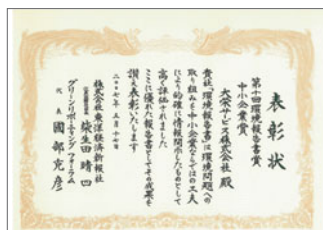 表彰状
第十回環境報告書賞
中小企業賞
大栄サービス株式会社 殿
貴社「環境報告書」は環境問題への
取り組みを中小企業ならではの工夫
により的確に情報開示したものとして
高く評価されました
ここに優れた報告書としてその成果を
讃え表彰いたします
二〇〇七年五月十七日
株式会社東洋経済新報社
柴生田晴四
グリーンリポーティングフォーラム
代表 國部克彦